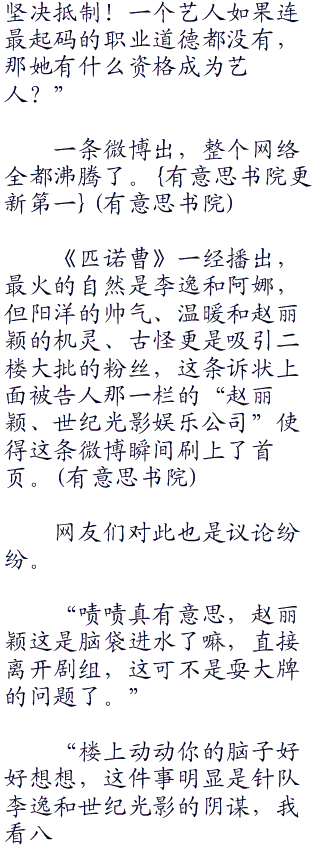 坚决抵制！一个艺人如果连
最起码的职业道德都没有，
那她有什么资格成为艺
人？”
一条微博出，整个网络
全都沸腾了。{有意思书院更
新第一} (有意思书院)
《匹诺曹》一经播出，
最火的自然是李逸和阿娜，
但阳洋的帅气、温暖和赵丽
颖的机灵、古怪更是吸引二
楼大批的粉丝，这条诉状上
面被告人那一栏的“赵丽
颖、世纪光影娱乐公司”使
得这条微博瞬间刷上了首
页。(有意思书院)
网友们对此也是议论纷
纷。
“啧啧真有意思，赵丽
颖这是脑袋进水了嘛，直接
离开剧组，这可不是耍大牌
的问题了。”
“楼上动动你的脑子好
好想想，这件事明显是针队
李逸和世纪光影的阴谋，我
看八